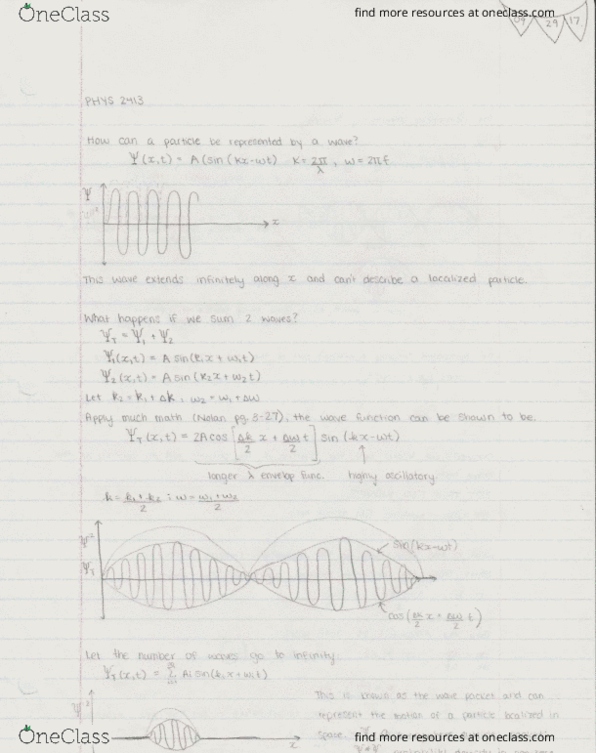 OneClass
find more resources at oneclass.com
09 29 17
PHYS 2413
How can a particle be represented by a wave?
Ψ(x,t) = A(sin (kx-wt) K = 2π/λ , w = 2πf
Ψ
x
This wave extends infinitely along x and can't describe a localized particle.
What happens if we sum 2 waves?
Ψ_T = Ψ_1 + Ψ_2
Ψ_1(x,t) = A sin(k_1x + w_1t)
Ψ_2(x,t) = A sin (k_2x + w_2t)
Let k_2 = k_1 + Δk ; w_2 = w_1 + Δw
Apply much math (Nolan pg. 3-27), the wave function can be shown to be.
Ψ_T (x,t) = 2A cos [Δk/2 x + Δw/2 t] sin (kx-wt)
longer λ envelop func. highly oscillatory.
k = k_1 + k_2/2 ; w = w_1 + w_2/2
sin(kx-wt)
Ψ_T
cos(Δk/2 x + Δw/2 t)
Let the number of waves go to infinity.
Ψ_T(x,t) = Σ Ai sin(k_i x + w_i t)
This is known as the wave packet and can
represent the motion of a particle localized in
space.
x
OneClass
find more resources at oneclass.com